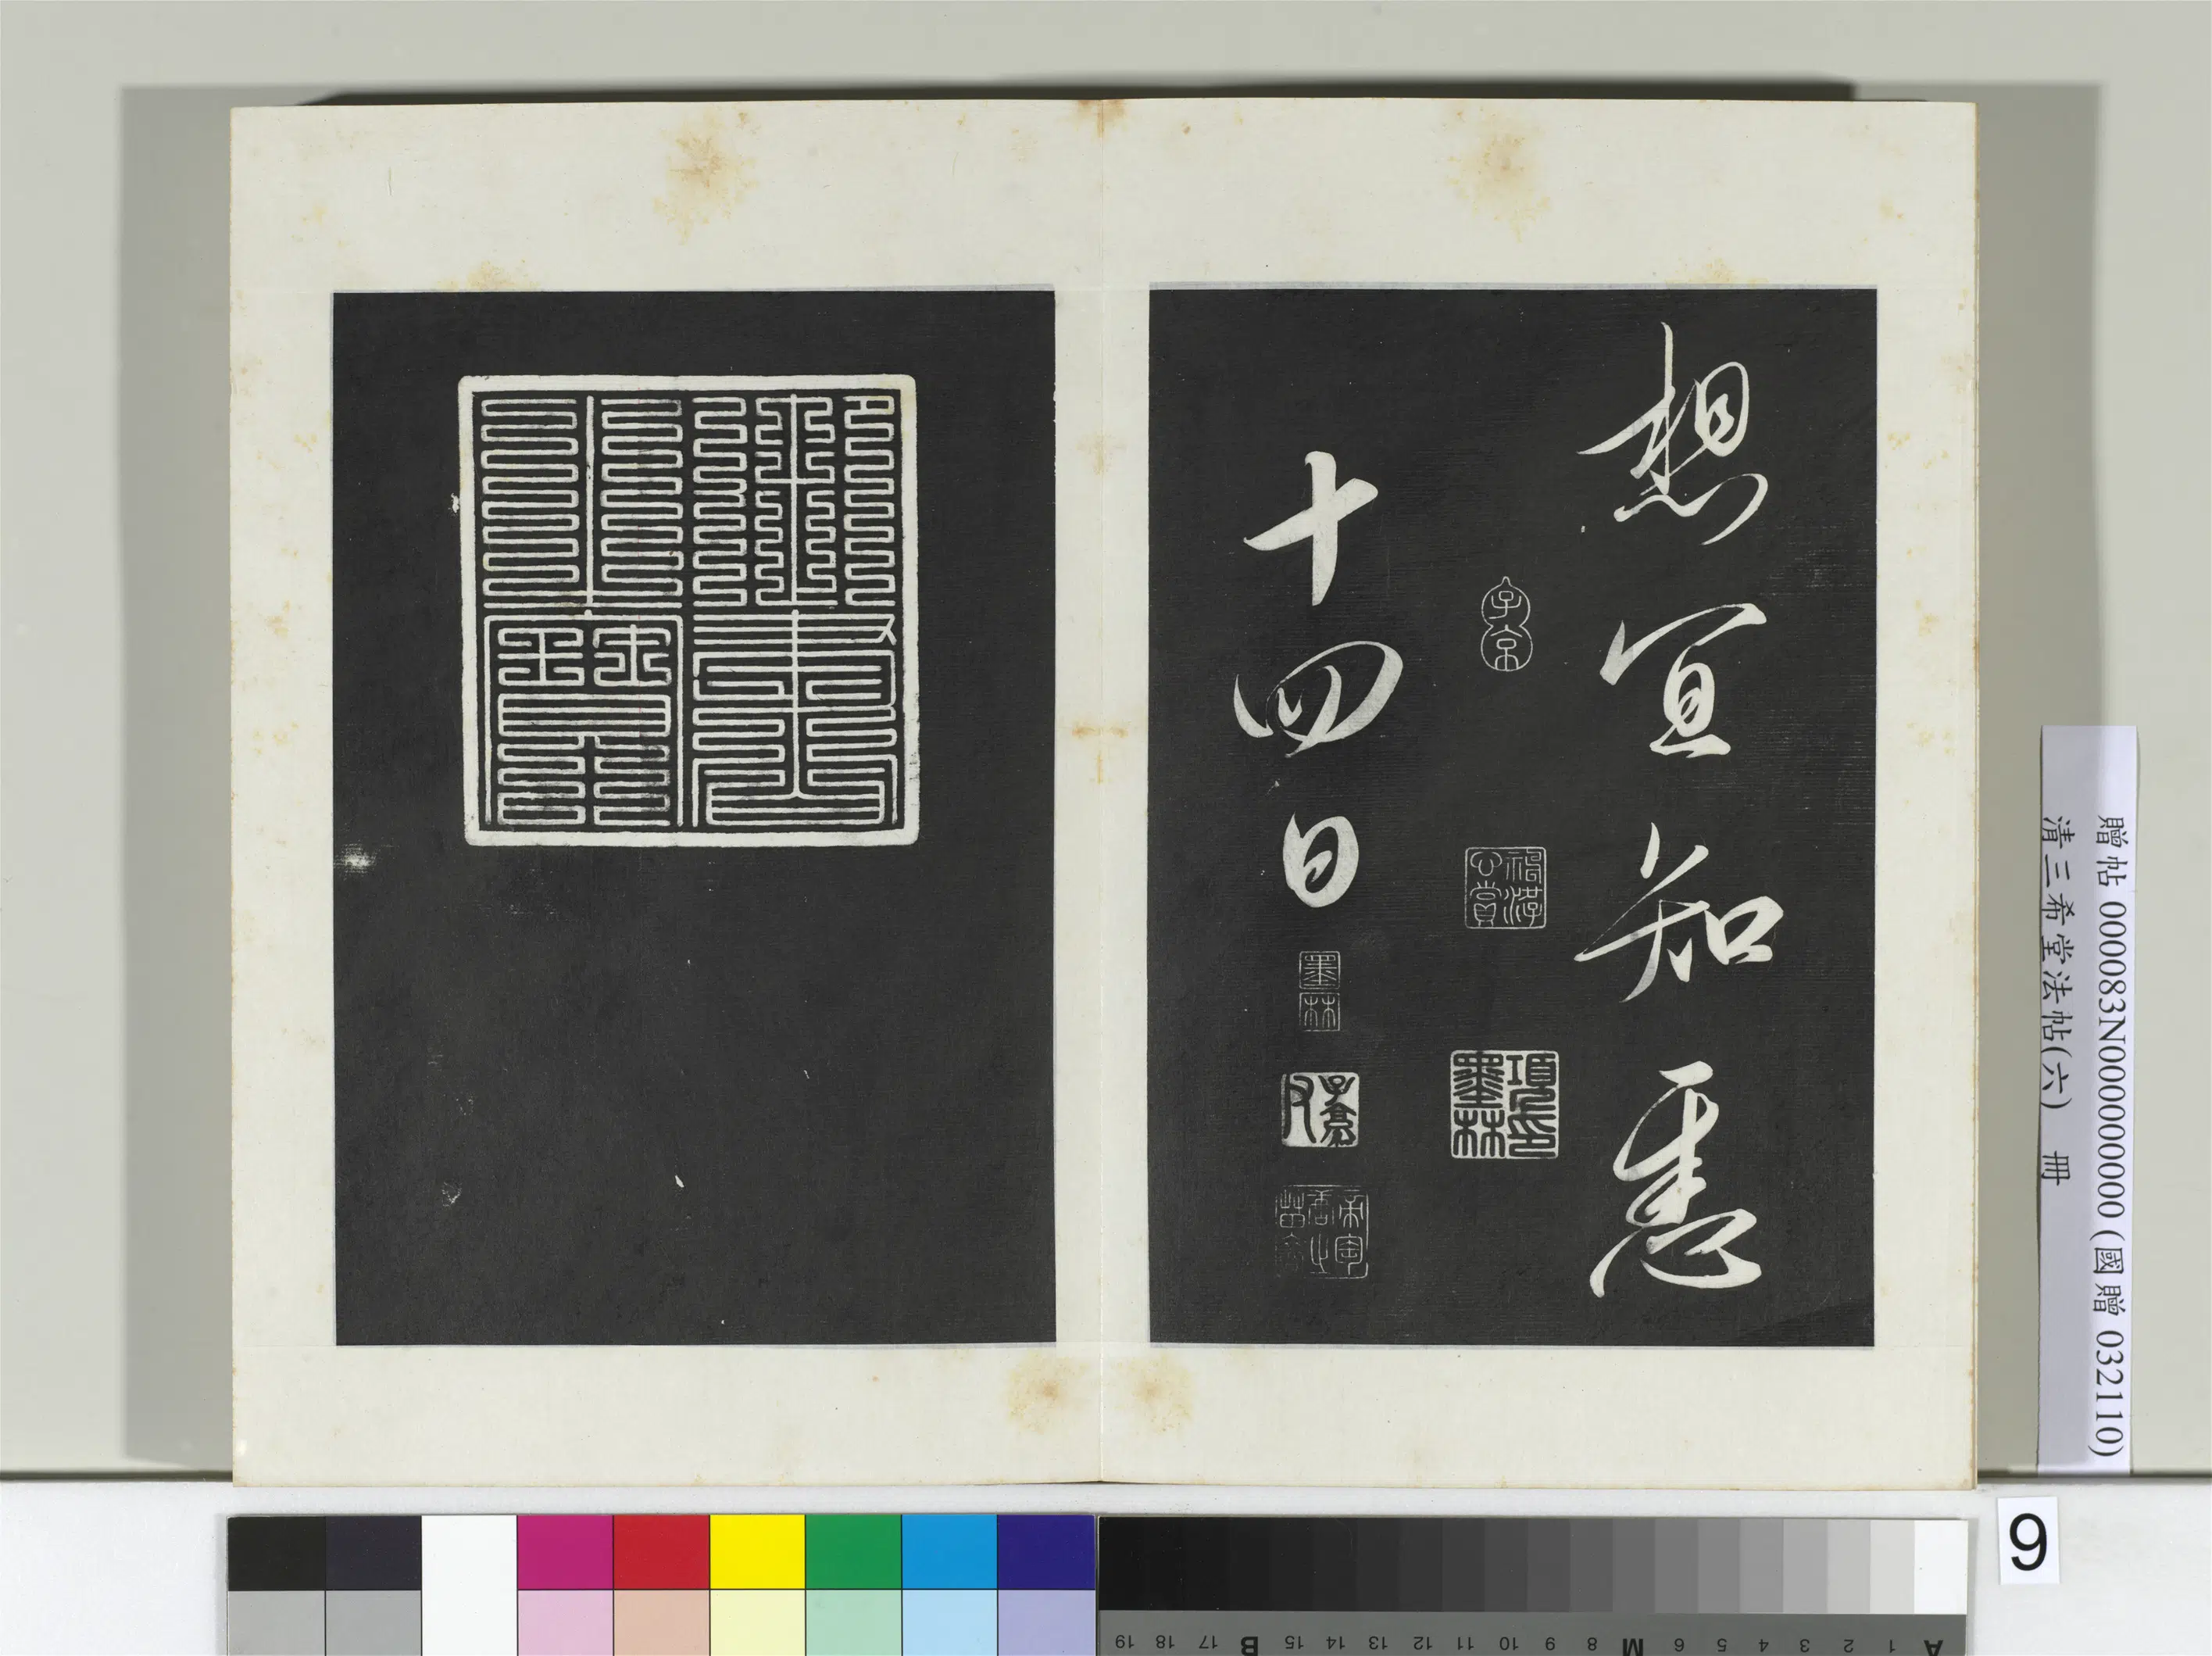 想宜知悉
十四日
子京
項墨林印
墨林
子孫
贈帖 000083N000000000 (國贈 032110)
清三希堂法帖(六) 冊
9
A 1 2 3 4 5 6 M 8 9 10 11 12 13 14 15 B 17 18 19